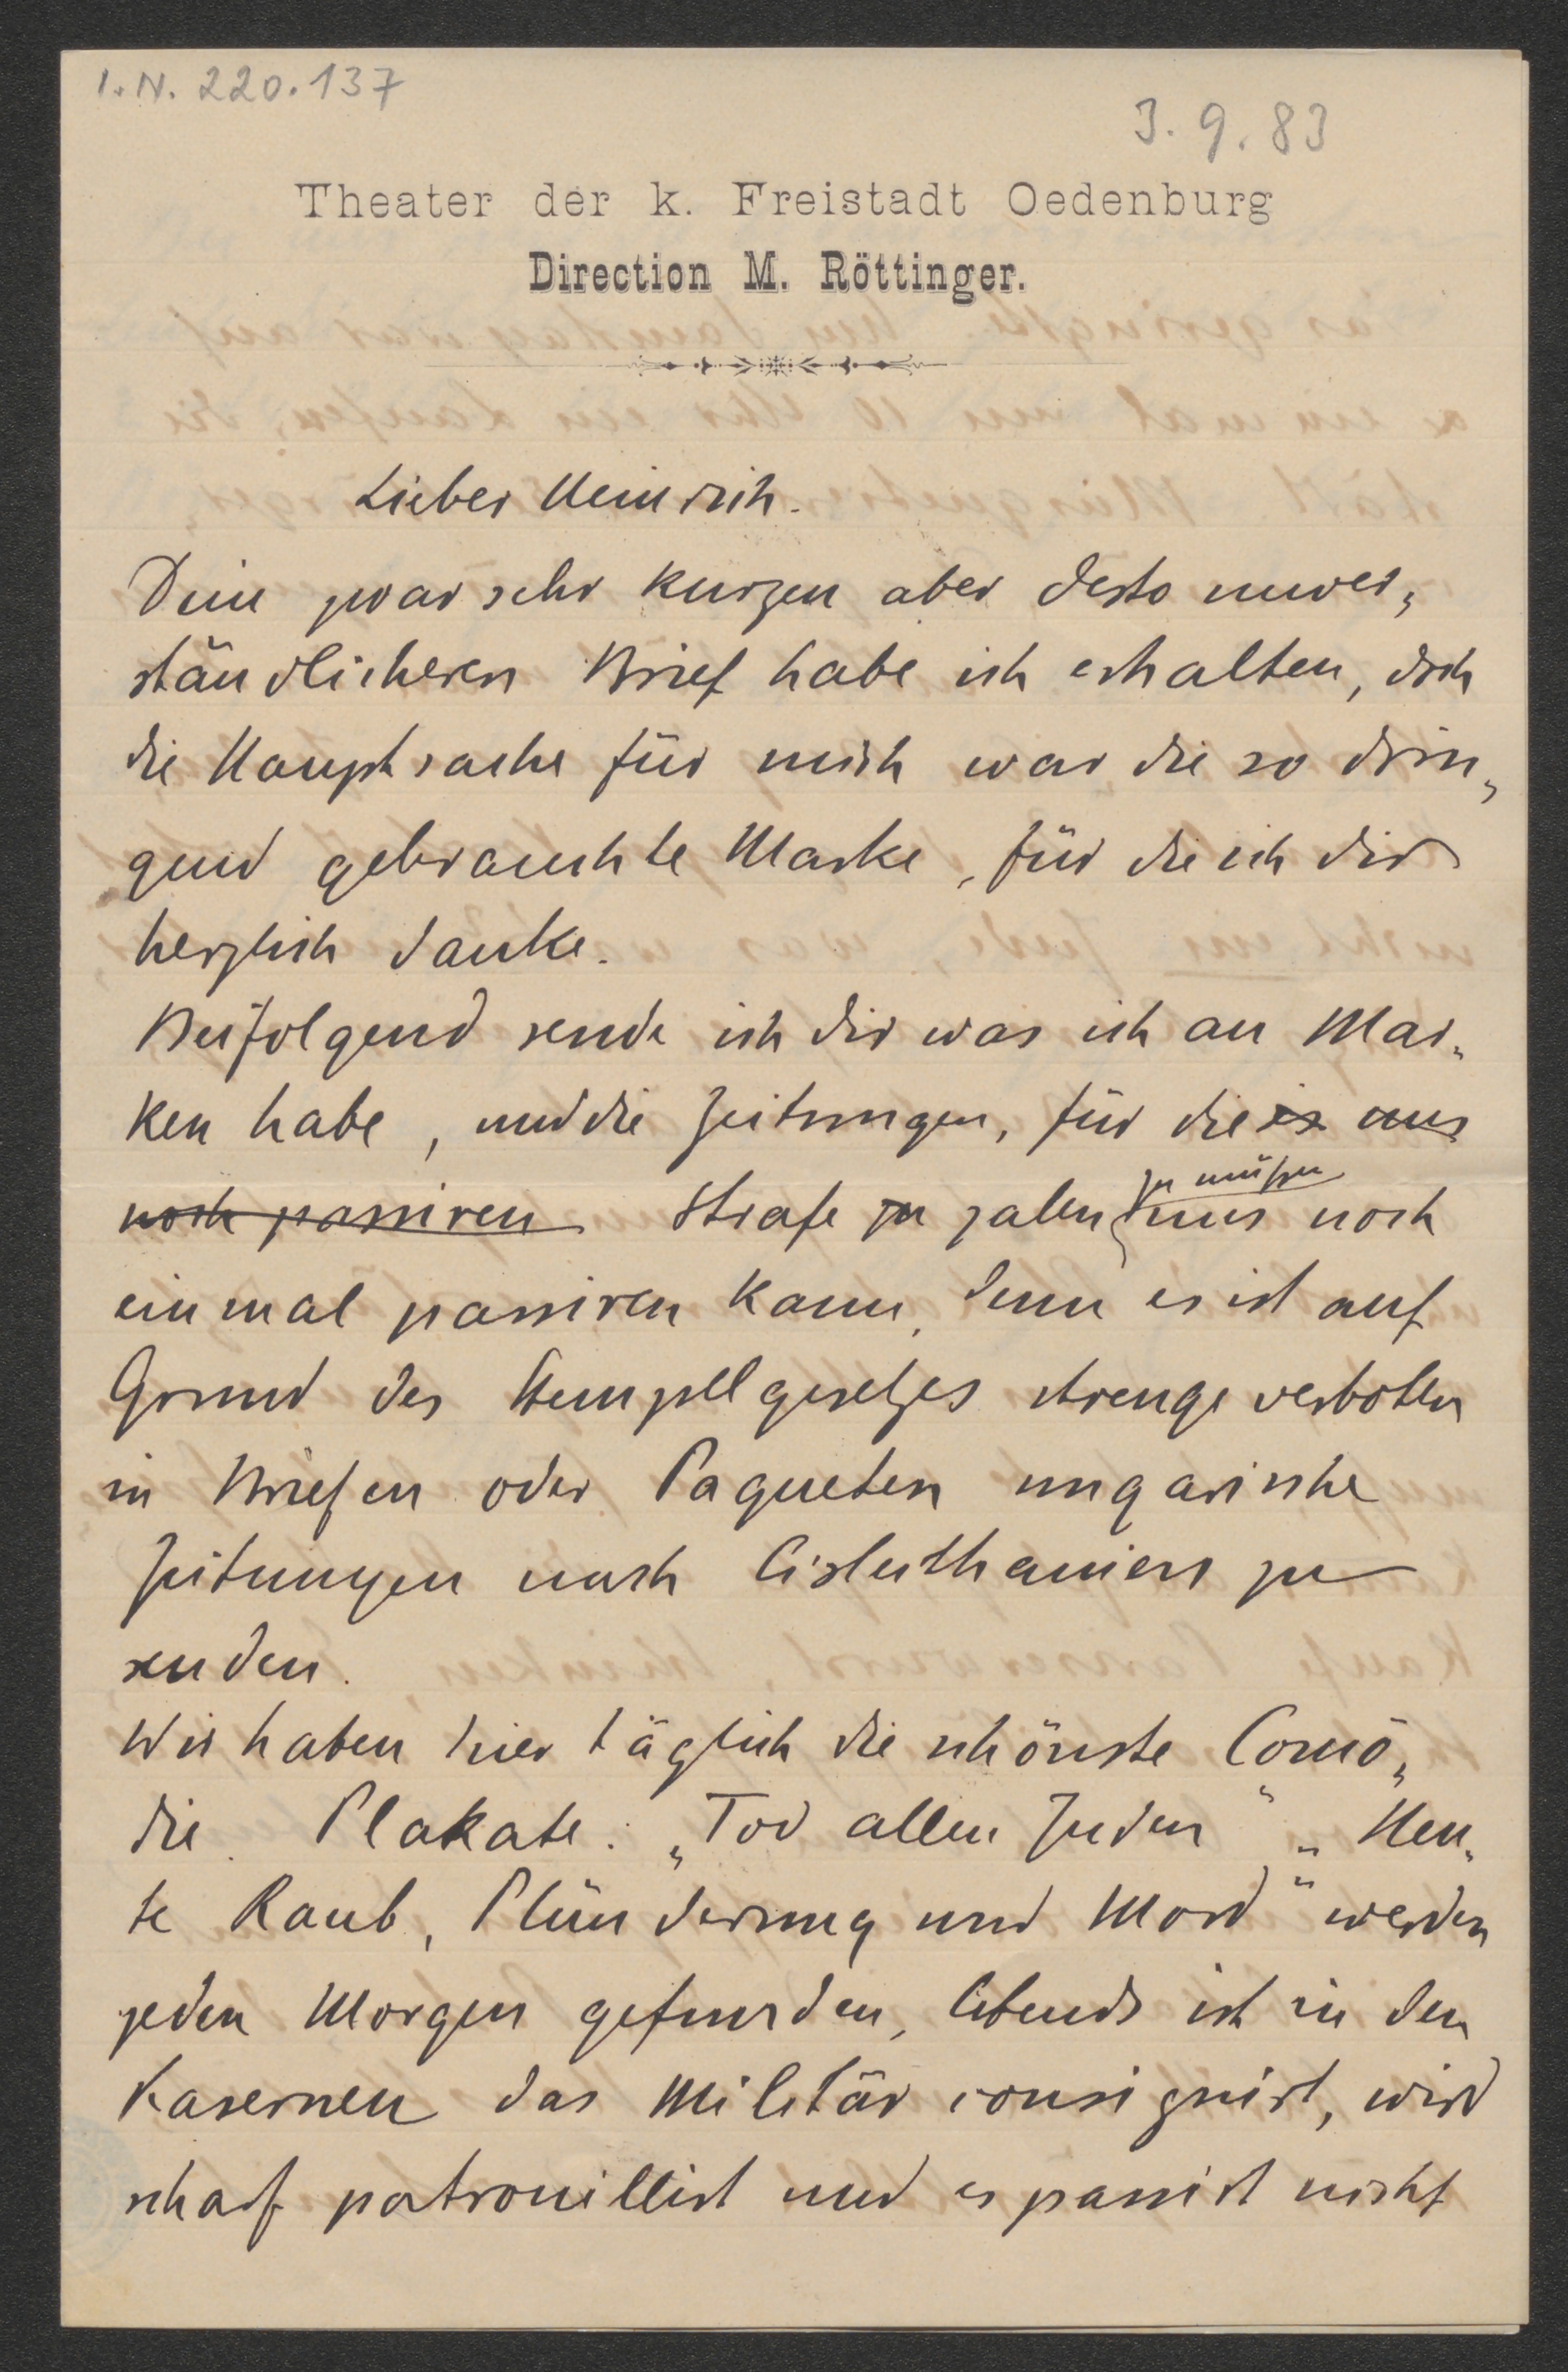 I.N. 220.137
3. 9. 83
Theater der k. Freistadt Oedenburg
Direction M. Röttinger.
Lieber Heinrich.
Dein zwar sehr kurzen aber desto unver„
ständlicheren Brief habe ich erhalten, doch
die Hauptsache für mich war die so drin„
gend gebrauchte Marke, für die ich dir
herzlich danke.
Beifolgend sende ich dir was ich an Mar„
ken habe, und die Zeitungen, für die es uns
noch passiren Strafe zu zalen zu müßen uns noch
einmal passiren kann, denn es ist auf
Grund des Stempelgesetzes strenge verboten
in Briefen oder Paqueten ungarische
Zeitungen nach Cisleithanien zu
senden.
Wir haben hier täglich die schönste Comö„
die. Plakate: „Tod allen Juden“ „Heu„
te Raub, Plünderung und Mord“ werden
jeden Morgen gefunden, Abends ist in den
Kasernen das Militär consignirt, wird
scharf patrouillirt und es passirt nicht